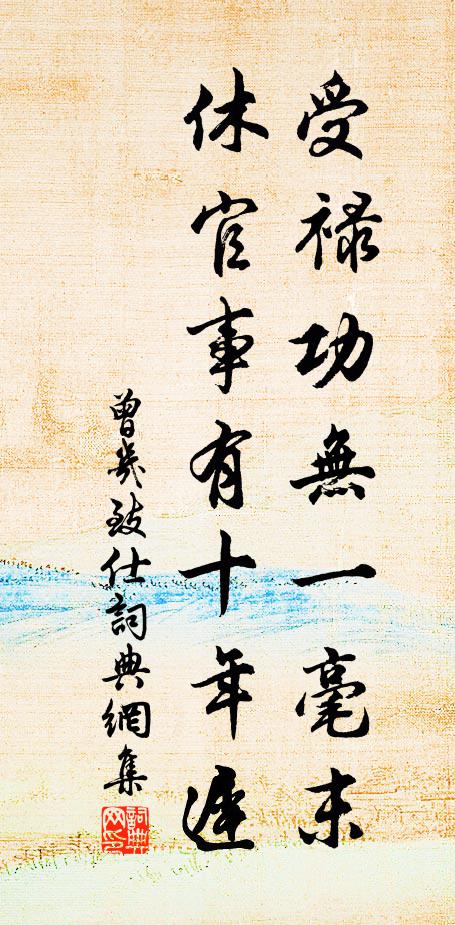 受禄功無一毫末
休官事有十年遲
曾幾致仕詞典網集
詞典网印